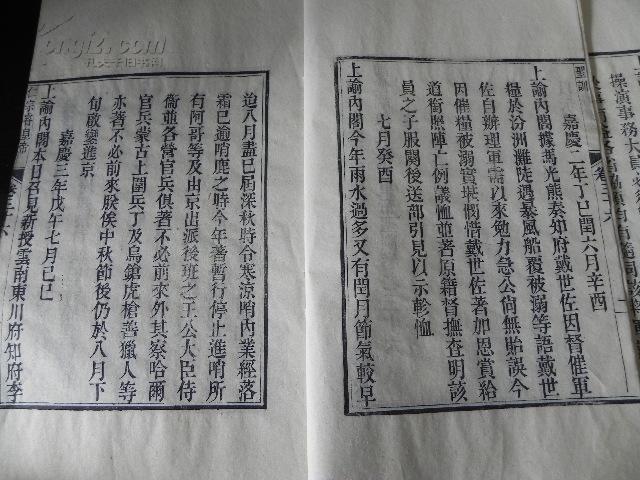 聖訓
嘉慶二年丁巳閏六月辛酉
上諭內閣據馮光熊奏知府戴世佐因督催軍
糧於汾洲灘陡遇暴風船覆被溺等語戴世
佐自辦理軍需以來勉力急公尚無貽誤今
因催糧被溺實堪憫惻戴世佐著加恩賞給
道銜照陣亡例議恤並著原籍督撫查明該
員之子服闋後送部引見以示軫恤
七月癸酉
上諭內閣今年雨水過多又有閏月節氣較早
迨八月盡已屆深秋時令寒涼哨內業經落
霜已逾哨鹿之時今年著暫行停止進哨所
有阿哥等及由京出派後班之王公大臣侍
衞並各營官兵俱著不必前來外其察哈爾
官兵蒙古上圍兵丁及烏鎗虎槍善獵人等
亦著不必前來朕俟中秋節後仍於八月下
旬啟鑾進京
嘉慶三年戊午七月己巳
上諭內閣本日召見新授雲南東川府知府李